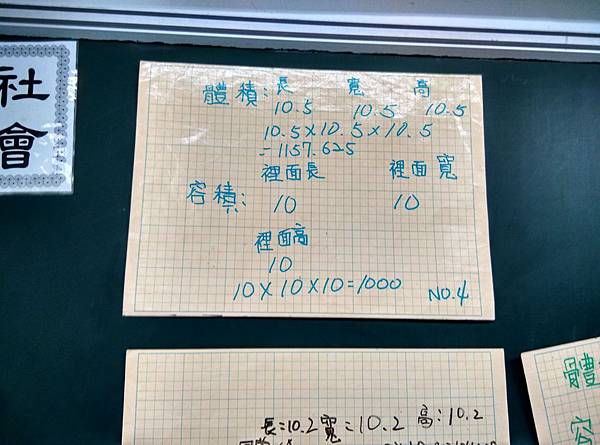 社會
體積:長 寬 高
10.5 10.5 10.5
10.5×10.5×10.5
=1157.625
裡面長 裡面寬
容積: 10 10
裡面高
10
10×10×10=1000 NO.4
長=10.2 寬=10.2 高:10.2
體
容